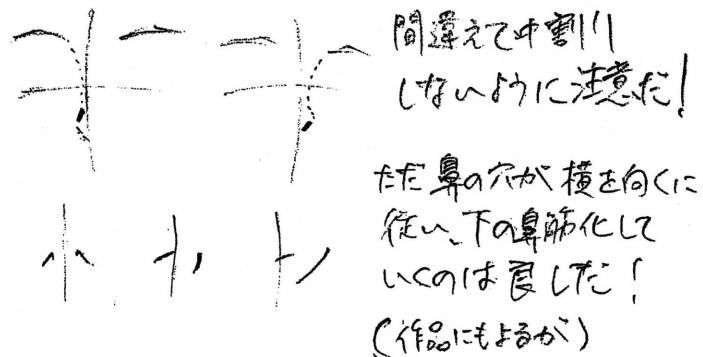 間違えて中割り
しないように注意だ!
ただ鼻の穴が横を向くに
従い、下の鼻筋化して
いくのは良しだ!
(作品にもよるが)